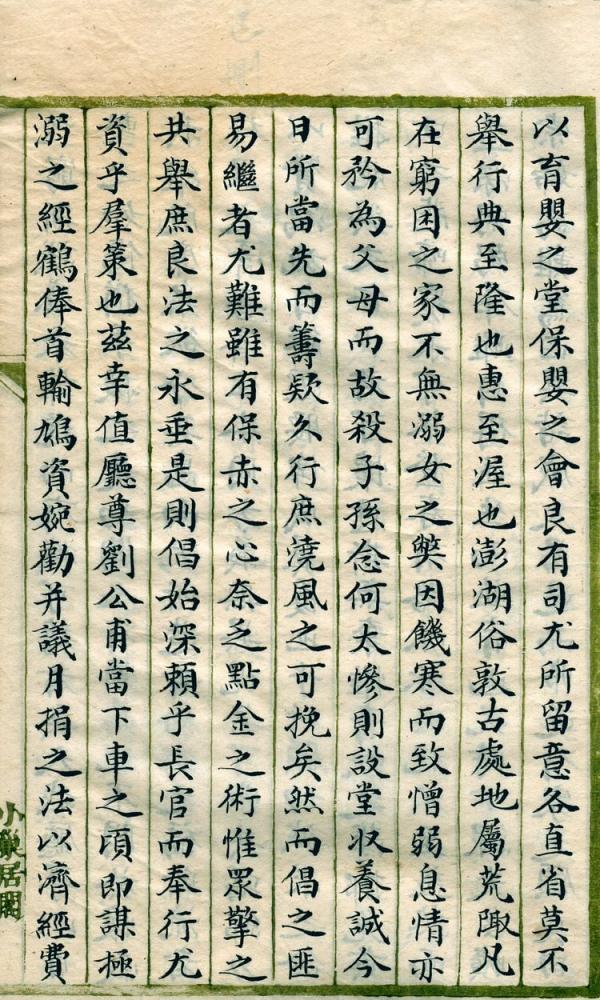 以育嬰之堂保嬰之會良有司尤所留意各直省莫不
舉行典至隆也惠至渥也澎湖俗敦古處地屬荒陬凡
在窮困之家不無溺女之弊因饑寒而致憎弱息情亦
可矜為父母而故殺子孫念何太慘則設堂收養誠今
日所當先而籌欵久行庶澆風之可挽矣然而倡之匪
易繼者尤難雖有保赤之心奈乏點金之術惟眾擎之
共舉庶良法之永垂是則倡始深賴乎長官而奉行尤
資乎羣策也茲幸值廳尊劉公甫當下車之頃即謀極
溺之經鶴俸首輸鳩資婉勸并議月捐之法以濟經費